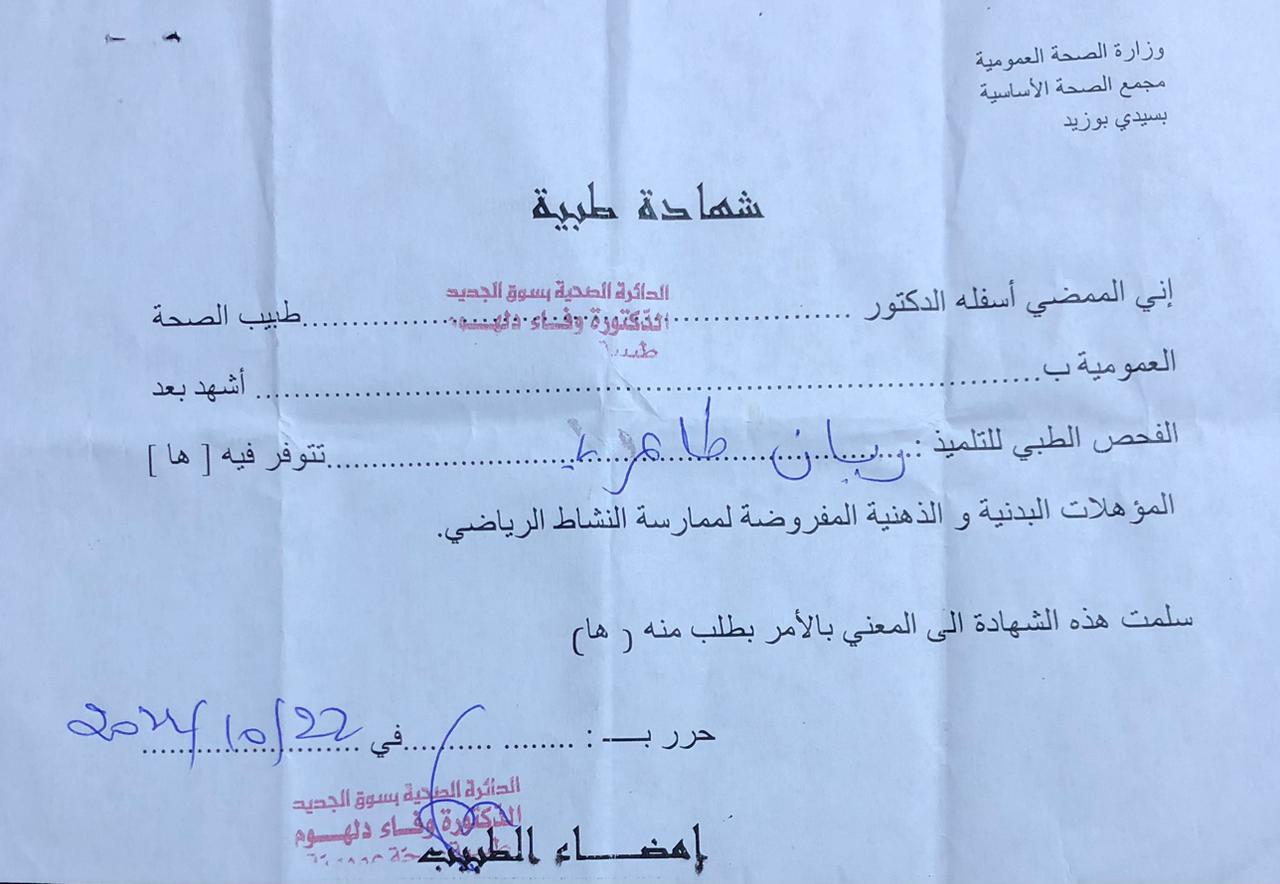 وزارة الصحة العمومية
مجمع الصحة الأساسية
بسيدي بوزيد
شهادة طبية
الدائرة الصحية بسوق الجديد
إني الممضي أسفله الدكتور ........ الدكتورة وفاء دلهوم ........ طبيب الصحة
طبيبة
العمومية ب........ أشهد بعد
الفحص الطبي للتلميذ : ريان طاهري ........ تتوفر فيه [ ها ]
المؤهلات البدنية و الذهنية المفروضة لممارسة النشاط الرياضي.
سلمت هذه الشهادة الى المعني بالأمر بطلب منه ( ها)
حرر بـــ : ........ ........ في 22/10/
الدائرة الصحية بسوق الجديد
الدكتورة وفاء دلهوم
إمضاء الطبيب